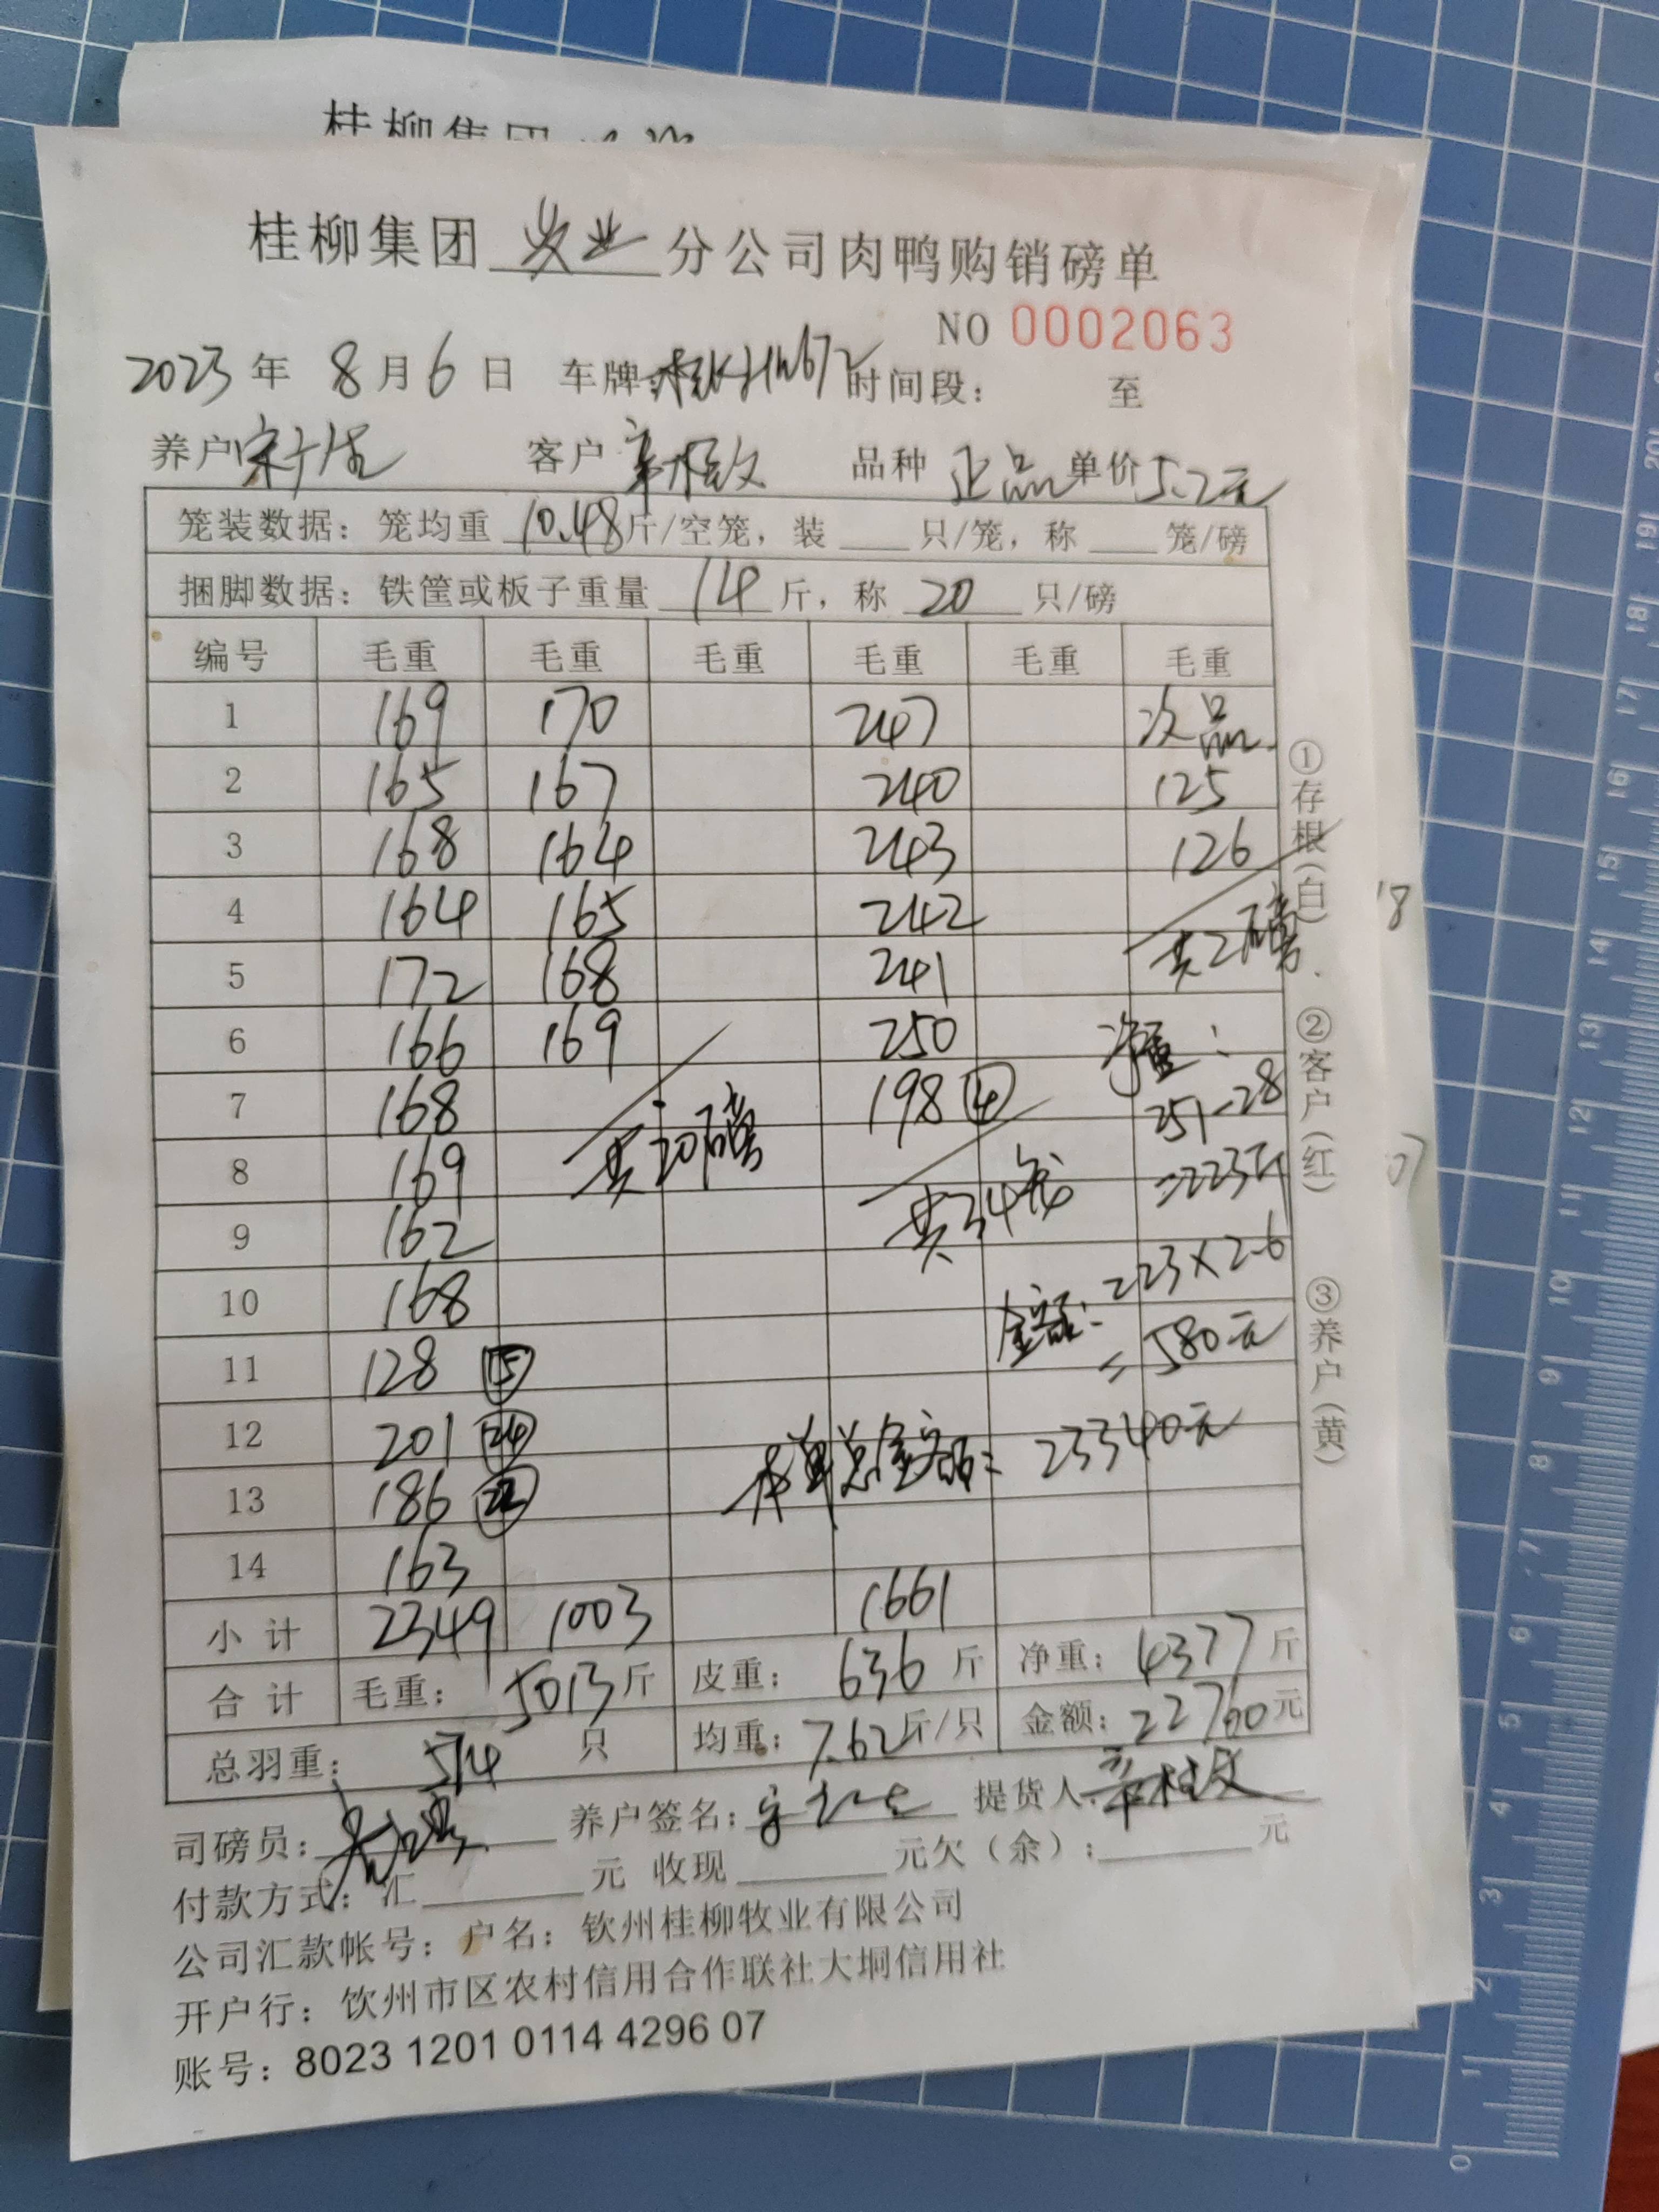 桂柳集团
桂柳集团 牧业 分公司肉鸭购销磅单
NO 0002063
2023 年 8 月 6 日 车牌: 时间段: 至
养户 客户 品种 正品 单价 5.2元
笼装数据: 笼均重 10.48 斤/空笼, 装 只/笼, 称 笼/磅
捆脚数据: 铁筐或板子重量 14 斤, 称 20 只/磅
编号 毛重 毛重 毛重 毛重 毛重 毛重
1 169 170 247 次品
2 165 167 240 125
3 168 164 243 126
4 164 165 242 共2磅
5 172 168 241
6 166 169 250 净重:
7 168 198 ④ 251-28
8 169 共20磅 共34笼 =223斤
9 162
10 168 金额: 223×2.6
11 128 ⑮ =580元
12 201 ㉔ 本单总金额: 23340元
13 186 ㉒
14 163
小计 2349 1003 1661
合计 毛重: 5013 斤 皮重: 636 斤 净重: 4377 斤
总羽重: 574 只 均重: 7.62 斤/只 金额: 22760 元
司磅员: 养户签名: 提货人:
付款方式: 汇 元 收现 元欠(余): 元
公司汇款帐号: 户名: 钦州桂柳牧业有限公司
开户行: 钦州市区农村信用合作联社大垌信用社
账号: 8023 1201 0114 4296 07
①存根(白) ②客户(红) ③养户(黄)
0 1 2 3 4 5 6 7 8 9 10 11 12 13 14 15 16 17 18 19 20